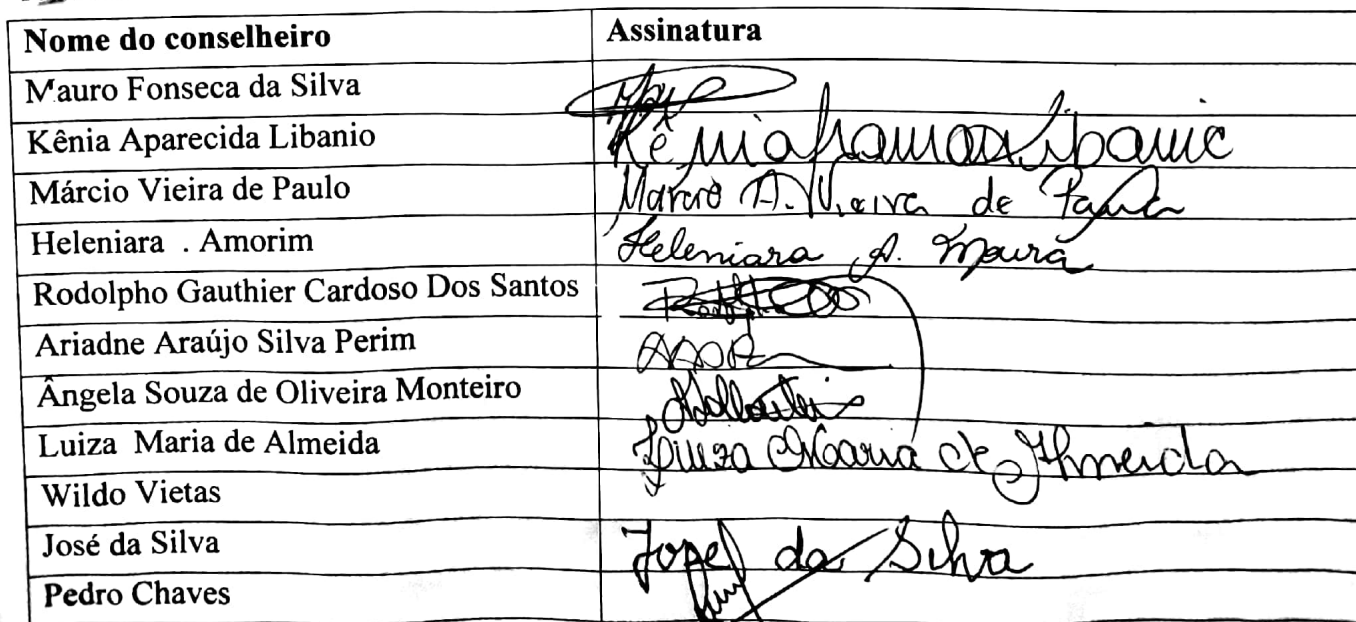 Nome do conselheiro Assinatura
Mauro Fonseca da Silva
Kênia Aparecida Libanio Kênia Libanio
Márcio Vieira de Paulo Marcio A. Vieira de Paula
Heleniara . Amorim Heleniara A. Moura
Rodolpho Gauthier Cardoso Dos Santos
Ariadne Araújo Silva Perim
Ângela Souza de Oliveira Monteiro
Luiza Maria de Almeida Luiza Maria de Almeida
Wildo Vietas
José da Silva José da Silva
Pedro Chaves